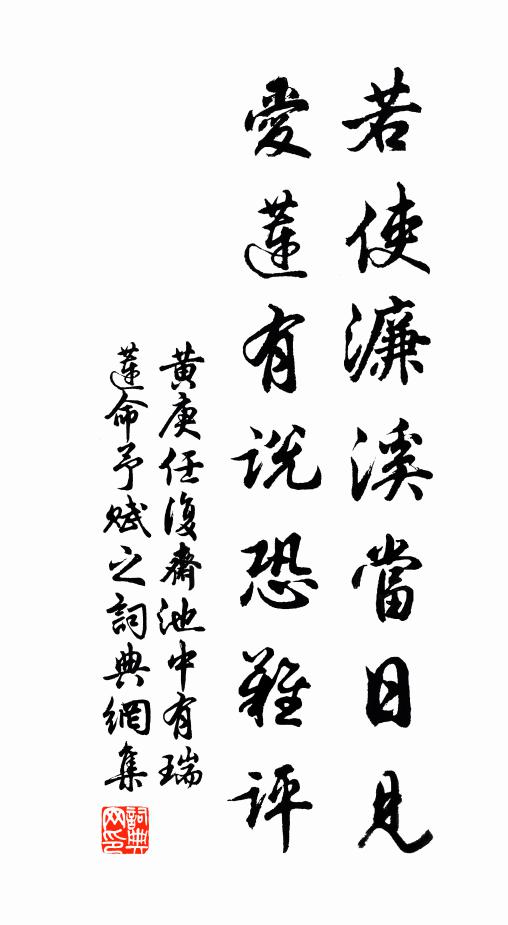 若使濂溪當日見
愛蓮有説恐難評
黃庚任復齋池中有瑞
蓮命予賦之詞典網集
詞典網印